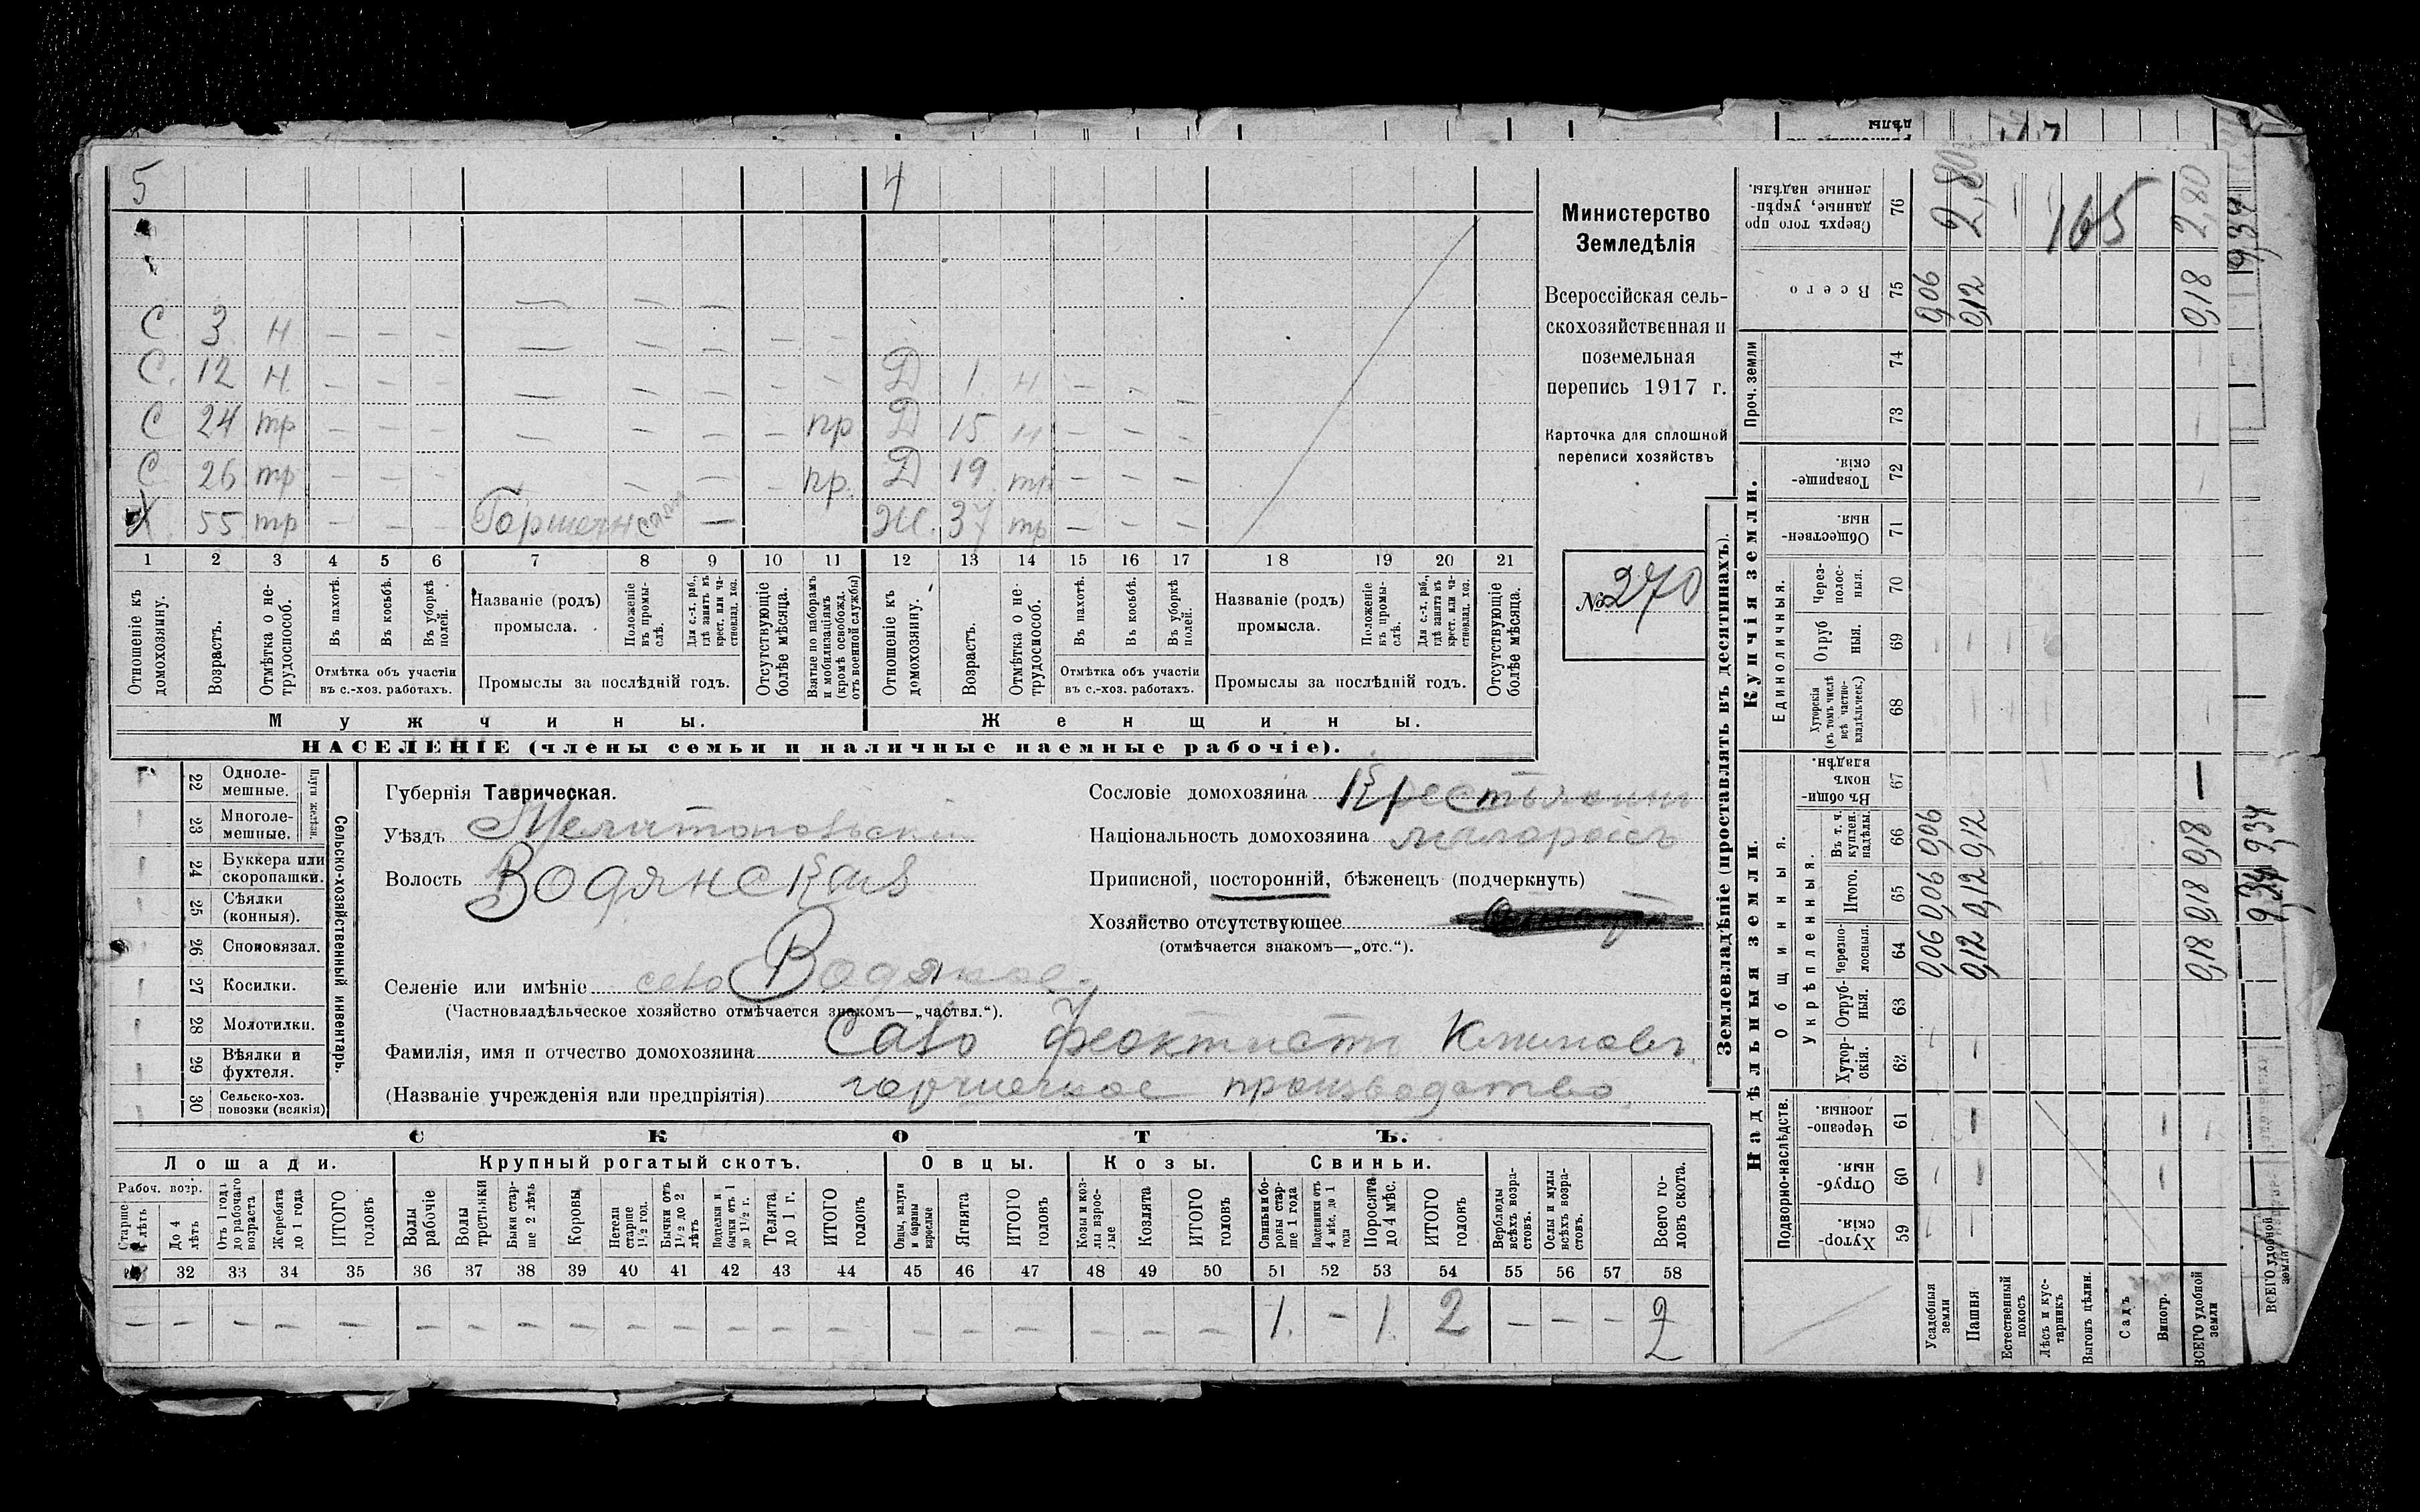 5 4
С. 3 н – – – – – – – –
С. 12 н. – – – – – – – – Д 1 н – – –
С 24 тр – – – – – – – пр Д 15 н – – –
С. 26 тр – – – – – – – пр. Д 19 тр – – –
Х 55 тр – – – – Ж. 37 тр – – –
1 2 3 4 5 6 7 8 9 10 11 12 13 14 15 16 17 18 19 20 21
Отношеніе къ домохозяину.
Возрастъ.
Отмѣтка о не-трудоспособ.
Въ пахотѣ.
Въ косьбѣ.
Въ уборкѣ полей.
Названіе (родъ) промысла.
Положеніе въ промы-слѣ.
Для с.-х. раб., гдѣ занятъ въ крест. или ча-стновлад. хоз.
Отсутствующіе болѣе мѣсяца.
Взятые по наборамъ и мобилизаціямъ (кромѣ освобожд. отъ военной службы)
Отношеніе къ домохозяину.
Возрастъ.
Отмѣтка о не-трудоспособ.
Въ пахотѣ.
Въ косьбѣ.
Въ уборкѣ полей.
Названіе (родъ) промысла.
Положеніе въ промы-слѣ.
Для с.-х. раб., гдѣ занята въ крест. или ча-стновлад. хоз.
Отсутствующіе болѣе мѣсяца.
Отмѣтка объ участіи въ с.-хоз. работахъ.
Промыслы за послѣдній годъ.
Отмѣтка объ участіи въ с.-хоз. работахъ.
Промыслы за послѣдній годъ.
Мужчины. Женщины.
НАСЕЛЕНІЕ (члены семьи и наличные наемные рабочіе).
Министерство
Земледѣлія
Всероссійская сель-
скохозяйственная и
поземельная
перепись 1917 г.
Карточка для сплошной
переписи хозяйствъ
№ 270
22 Одноле-мешные.
23 Многоле-мешные.
Плуги желѣзн.
24 Буккера или скоропашки.
25 Сѣялки (конныя).
26 Сноповязал.
27 Косилки.
28 Молотилки.
29 Вѣялки и фухтеля.
30 Сельско-хоз. повозки (всякія)
Сельско-хозяйственный инвентарь.
Губернія Таврическая.
Уѣздъ Мелитопольскій
Волость Водянская
Селеніе или имѣніе село Водяное.
(Частновладѣльческое хозяйство отмѣчается знакомъ—„частвл.“).
Фамилія, имя и отчество домохозяина Саво Феоктистъ Климовъ
(Названіе учрежденія или предпріятія) горшечное производство
Сословіе домохозяина Крестьянинъ
Національность домохозяина малороссъ
Приписной, посторонній, бѣженецъ (подчеркнуть)
Хозяйство отсутствующее
(отмѣчается знакомъ—„отс.“).
СКОТЪ.
Лошади. Крупный рогатый скотъ. Овцы. Козы. Свиньи.
Рабоч. возр.
До 4 лѣтъ
Отъ 1 года до рабочаго возраста
Жеребята до 1 года
ИТОГО головъ
Волы рабочіе
Волы третьяки
Быки стар-ше 2 лѣтъ
Коровы
Нетели старше 1½ год.
Бычки отъ 1½ до 2 лѣтъ
Подтелки и бычки отъ 1 до 1½ г.
Телята до 1 г.
ИТОГО головъ
Овцы, валухи и бараны взрослые
Ягнята
ИТОГО головъ
Козы и коз-лы взрос-лые
Козлята
ИТОГО головъ
Свиньи и бо-ровы стар-ше 1 года
Подсвинки отъ 4 мѣс. до 1 года
Поросята до 4 мѣс.
ИТОГО головъ
Верблюды всѣхъ возра-стовъ.
Ослы и мулы всѣхъ возра-стовъ.
Всего го-ловъ скота.
32 33 34 35 36 37 38 39 40 41 42 43 44 45 46 47 48 49 50 51 52 53 54 55 56 57 58
– – – – – – – – – – – – – – – – – – – – 1. – 1. 2 – – – 2
Землевладѣніе (проставлять въ десятинахъ).
Надѣльныя земли. Купчія земли.
Подворно-наслѣдств.
Общинныя.
Укрѣпленныя.
Единоличныя.
Проч. земли
Хутор-скія. 59
Отруб-ныя. 60
Черезпо-лосныя. 61
Хутор-скія. 62
Отруб-ныя. 63
Черезпо-лосныя. 64
Итого. 65
Въ т. ч. куплен. надѣлы. 66
Въ общи-номъ владѣн. 67
Хуторскія (въ томъ числѣ всѣ частно-владѣльческ.) 68
Отруб ныя. 69
Через-полос-ныя. 70
Обществен-ныя. 71
Товарище-скія. 72
73
74
Всего 75
Сверхъ того про данные, укрѣп-ленные надѣлы. 76
Усадебныя земли 0,06 0,06 0,06 0,06
Пашня 0,12 0,12 0,12 0,12 2,80
Естественный покосъ
Лѣсъ и кус-тарникъ
Выгонъ цѣлин.
Садъ
Виногр.
ВСЕГО удобной земли 0,18 0,18 0,18 – 0,18 2,80
165
9,34 9,34 9,34
ВСЕГО удобной земли